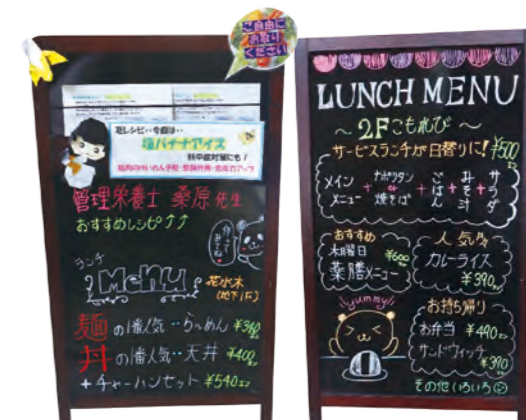 ご自由に
お取り
ください
花レシピ‥今回は‥
塩パイナアイス
熱中症対策にも!
管理栄養士 桑原先生
おすすめレシピ⤴⤴
作って
みてね
ランチ
Menu
花水木
(地下1F)
麺の1番人気‥らーめん ¥360より
丼の1番人気‥天丼 ¥400より
+チャーハンセット ¥540より
LUNCH MENU
~2Fこもれび~
サービスランチが日替りに! ¥500
メインメニュー + ナポリタン or 焼そば + ごはん + みそ汁 + サラダ
おすすめ
木曜日 ¥600
薬膳メニュー
人気
カレーライス
¥390より
yummy!
お持ち帰り
お弁当 ¥490より
サンドウィッチ
¥390
その他いろいろ